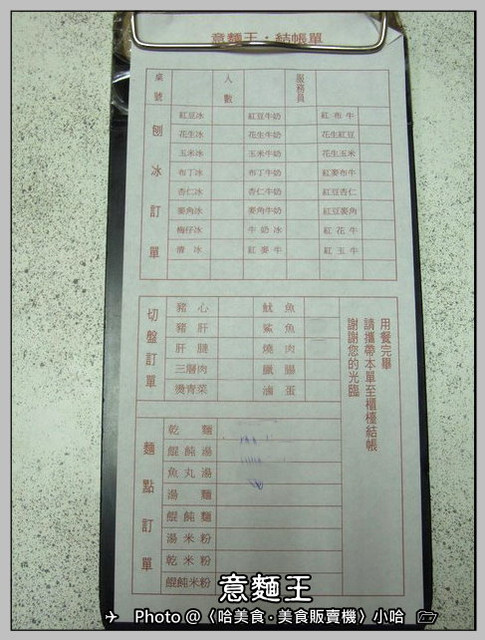 意麵王·結帳單
桌號 人數 服務員
刨冰訂單
紅豆冰 紅豆牛奶 紅布牛
花生冰 花生牛奶 花生紅豆
玉米冰 玉米牛奶 花生玉米
布丁冰 布丁牛奶 紅麥布牛
杏仁冰 杏仁牛奶 紅豆杏仁
麥角冰 麥角牛奶 紅豆麥角
梅仔冰 牛奶冰 紅花牛
清冰 紅麥牛 紅玉牛
切盤訂單
豬心 魷魚
豬肝 鯊魚
肝腱 燒肉
三層肉 臘腸
燙青菜 滷蛋
用餐完畢
請攜帶本單至櫃檯結帳
謝謝您的光臨
麵點訂單
乾麵
餛飩湯
魚丸湯
湯麵
餛飩麵
湯米粉
乾米粉
餛飩米粉
意麵王
Photo @〈哈美食·美食販賣機〉小哈